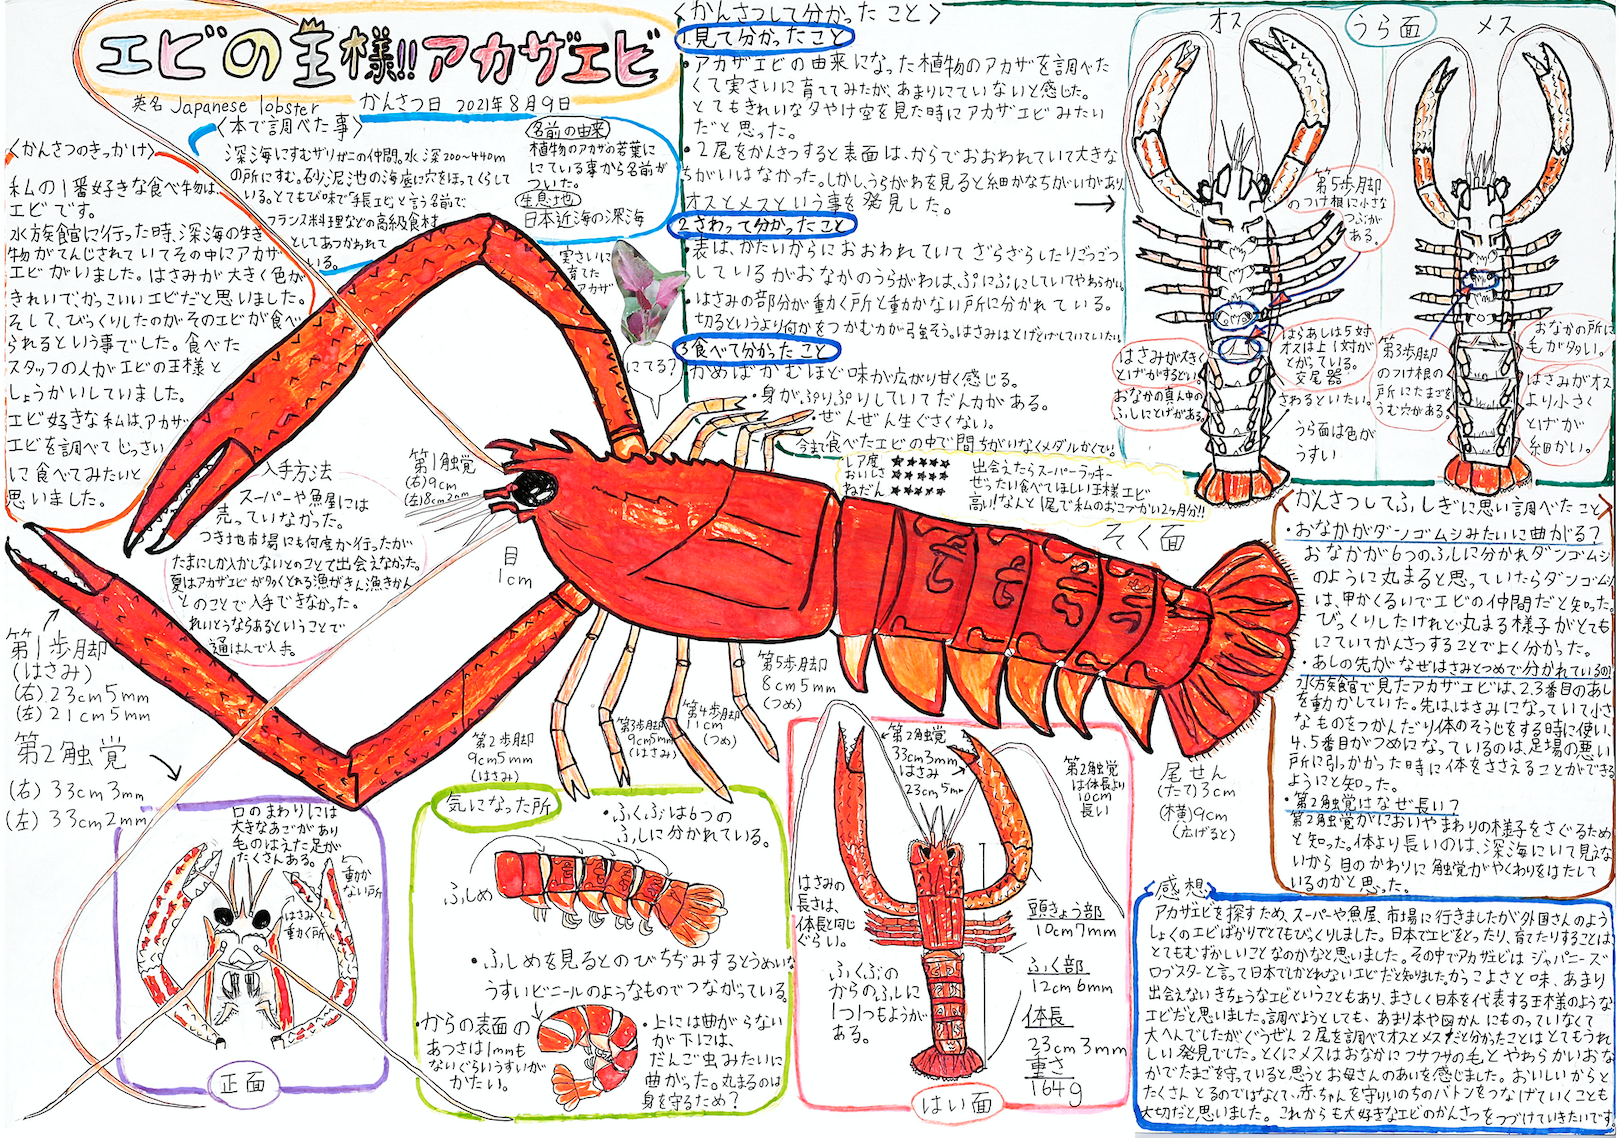 エビの王様!!アカザエビ
英名 Japanese lobster かんさつ日 2021年8月9日
〈かんさつのきっかけ〉
私の1番好きな食べ物は、
エビです。
水族館に行った時、深海の生き
物がてんじされていてその中にアカザ
エビがいました。はさみが大きく色が
きれいで、かっこいいエビだと思いました。
そして、びっくりしたのがそのエビが食べ
られるという事でした。食べた
スタッフの人がエビの王様と
しょうかいしていました。
エビ好きな私は、アカザ
エビを調べてじっさい
に食べてみたいと
思いました。
〈本で調べた事〉
深海にすむザリガニの仲間。水深200~440m
の所にすむ。砂泥池の海底に穴をほってくらして
いる。とても美味で手長エビと言う名前で、
フランス料理などの高級食材
としてあつかわれて
いる。
名前の由来
植物のアカザの若葉に
にている事から名前が
ついた。
生息地
日本近海の深海
実さいに
育てた
アカザ
にてる?
入手方法
スーパーや魚屋には
売っていなかった。
つき地市場にも何度か行ったが
たまにしか入かしないとのことで出会えなかった。
夏はアカザエビが多くとれる漁がきん漁きかん
とのことで入手できなかった。
れいとうならあるということで
通はんで入手。
第1触覚
(右)9cm
(左)8cm2mm
目
1cm
第1歩脚
(はさみ)
(右)23cm5mm
(左)21cm5mm
第2触覚
(右)33cm3mm
(左)33cm2mm
第2歩脚
9cm5mm
(はさみ)
第3歩脚
9cm5mm
(はさみ)
第4歩脚
11cm
(つめ)
第5歩脚
8cm5mm
(つめ)
そく面
尾せん
(たて)13cm
(横)9cm
(広げると)
〈かんさつして分かったこと〉
1.見て分かったこと
・アカザエビの由来になった植物のアカザを調べた
くて実さいに育ててみたが、あまりにていないと感じた。
とてもきれいな夕やけ空を見た時にアカザエビみたい
だと思った。
・2尾をかんさつすると表面は、からでおおわれていて大きな
ちがいはなかった。しかし、うらがわを見ると細かなちがいがあり、
オスとメスという事を発見した。
2.さわって分かったこと
・表は、かたいからにおおわれていてざらざらしたりごつごつ
しているがおなかのうらがわは、ぷにぷにしていてやわらかい。
・はさみの部分が動く所と動かない所に分かれている。
切るというより何かをつかむ力が強そう。はさみはとげとげしていていたい。
3.食べて分かったこと
・かめばかむほど味が広がり甘く感じる。
・身がぷりぷりしていてだん力がある。
・ぜんぜん生ぐさくない。
今まで食べたエビの中で間ちがいなくメダルかくてい。
レア度 ★★★★★
おいしさ ★★★★★
ねだん ★★★★★
出会えたらスーパーラッキー
ぜったい食べてほしい王様エビ
高い!なんと1尾で私のおこづかい2ヶ月分!!
オス
うら面
メス
第5歩脚
のつけ根に小さな
つぶが
ある。
はさみが大きく
とげがするどい。
おなかの真ん中の
ふしにとげがある。
はらあしは5対
オスは上1対が
とがっている。
交尾器
さわるといたい。
うら面は色が
うすい
第3歩脚
のつけ根の
所にたまごを
うむ穴がある。
おなかの所に
毛が多い。
はさみがオス
より小さく
とげが
細かい。
〈かんさつしてふしぎに思い調べたこと〉
・おなかがダンゴムシみたいに曲がる?
おなかが6つのふしに分かれダンゴムシ
のように丸まると思っていたらダンゴムシ
は、甲かくるいでエビの仲間だと知った。
びっくりしたけれど、丸まる様子がとても
にていてかんさつすることでよく分かった。
・あしの先がなぜはさみとつめで分かれているの?
水族館で見たアカザエビは、2.3番目のあし
を動かしていた。先は、はさみになっていて小さ
なものをつかんだり体のそうじをする時に使い、
4.5番目がつめになっているのは、足場の悪い
所に引っかかった時に体をささえることができる
ようにと知った。
・第2触覚はなぜ長い?
第2触覚がにおいやまわりの様子をさぐるため
と知った。体より長いのは、深海にいて見えな
いから目のかわりに触覚がやくわりをはたして
いるのかと思った。
口のまわりには
大きなあごがあり
毛のはえた足が
たくさんある。
動か
ない所
はさみ
動く所
正面
気になった所
・ふくぶは6つの
ふしに分かれている。
ふしめ
・ふしめを見るとのびちぢみするとうめいな
うすいビニールのようなものでつながっている。
・からの表面の
あつさは1mmも
ないぐらいうすいが
かたい。
・上には曲がらない
が下には、
だんご虫みたいに
曲がった。丸まるのは
身を守るため?
第2触覚
33cm3mm
はさみ
23cm5mm
第2触覚
は体長より
10cm
長い
はさみの
長さは、
体長と同じ
ぐらい。
ふくぶの
からのふしに
1つ1つもようが
ある。
頭きょう部
10cm7mm
ふく部
12cm6mm
体長
23cm3mm
重さ
164g
はい面
〈感想〉
アカザエビを探すため、スーパーや魚屋、市場に行きましたが外国さんのよう
しょくのエビばかりでとてもびっくりしました。日本でエビをとったり、育てたりすることは
とてもむずかしいことなのかなと思いました。その中でアカザエビはジャパニーズ
ロブスターと言って日本でしかとれないエビだと知りました。かっこよさと味、あまり
出会えないきちょうなエビということもあり、まさしく日本を代表する王様のような
エビだと思いました。調べようとしても、あまり本や図かんにものっていなくて
大へんでしたがぐうぜん2尾を調べてオスとメスだと分かったことはとてもうれ
しい発見でした。とくにメスはおなかにフサフサの毛とやわらかいおな
かでたまごを守っていると思うとお母さんのあいを感じました。おいしいからと
たくさんとるのではなくて、赤ちゃんを守りいのちのバトンをつなげていくことも
大切だと思いました。これからも大好きなエビのかんさつをつづけていきたいです。